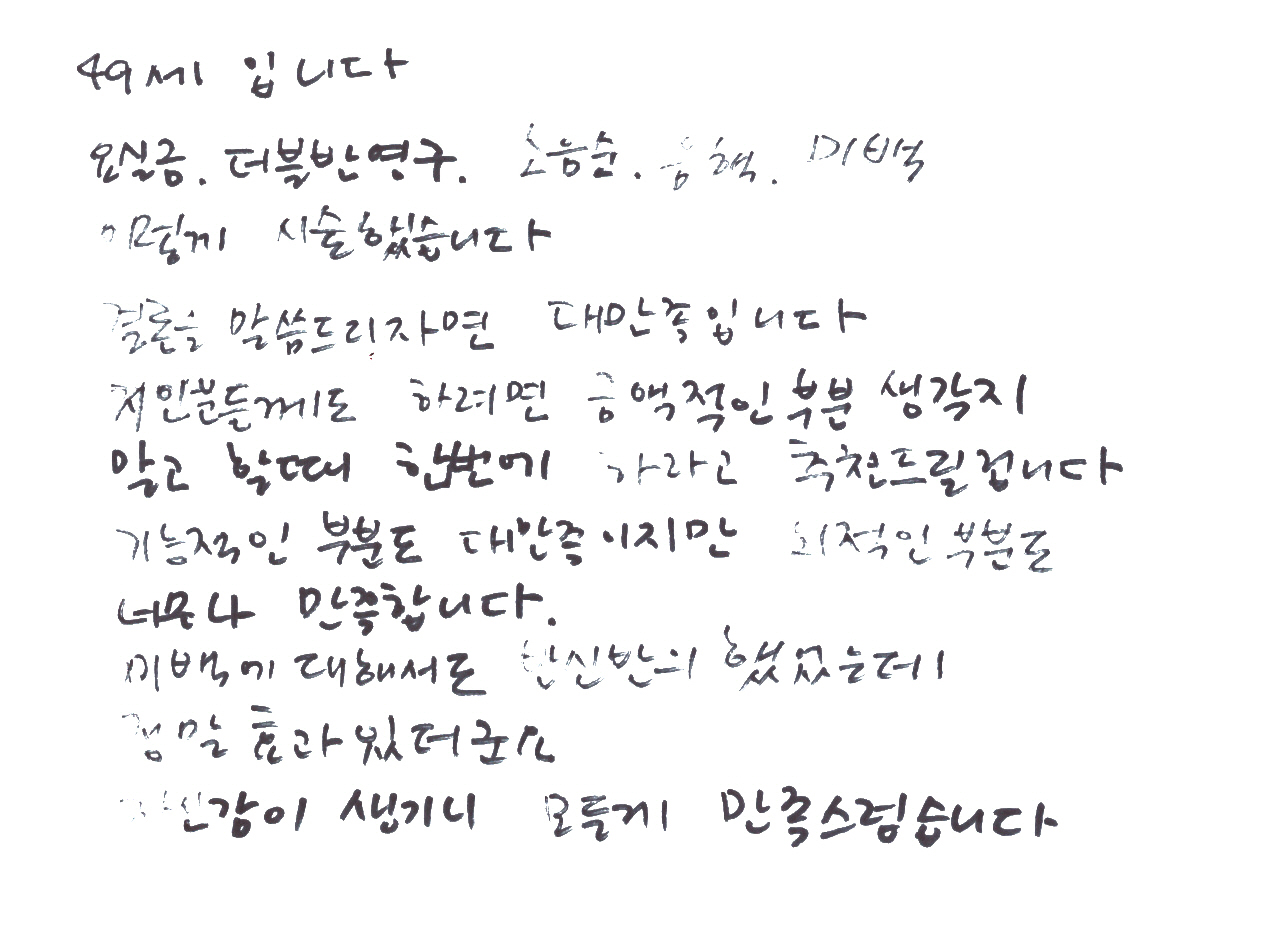 49세 입니다
요실금. 더블반영구. 소음순. 음핵. 미백
이렇게 시술했습니다
결론을 말씀드리자면 대만족입니다
지인분들께도 하려면 금액적인 부분 생각지
말고 할때 한번에 하라고 추천드릴겁니다
기능적인 부분도 대만족이지만 외적인 부분도
너무나 만족합니다.
미백에 대해서도 반신반의 했었는데
정말 효과 있더군요
자신감이 생기니 모든게 만족스럽습니다